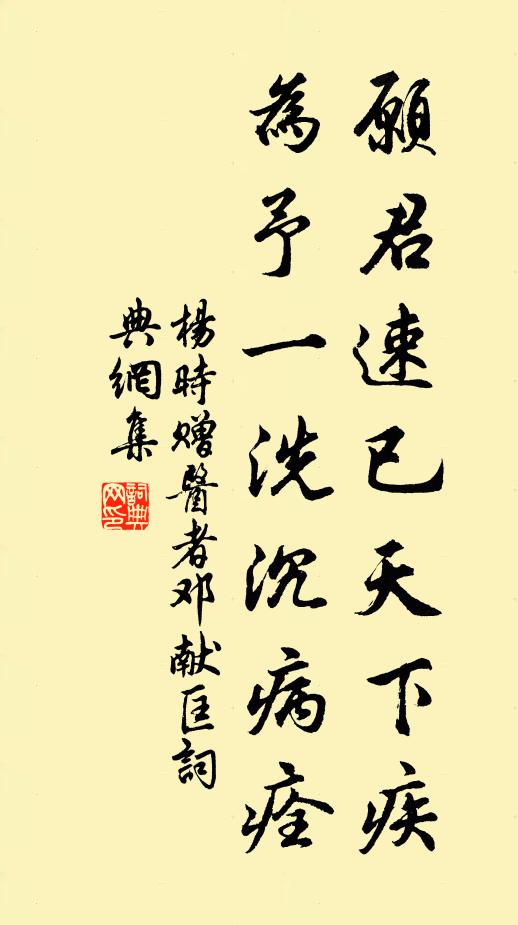 願君速已天下疾
為予一洗沉病痊
楊時贈醫者邓献匡詞
典網集
詞典
网印